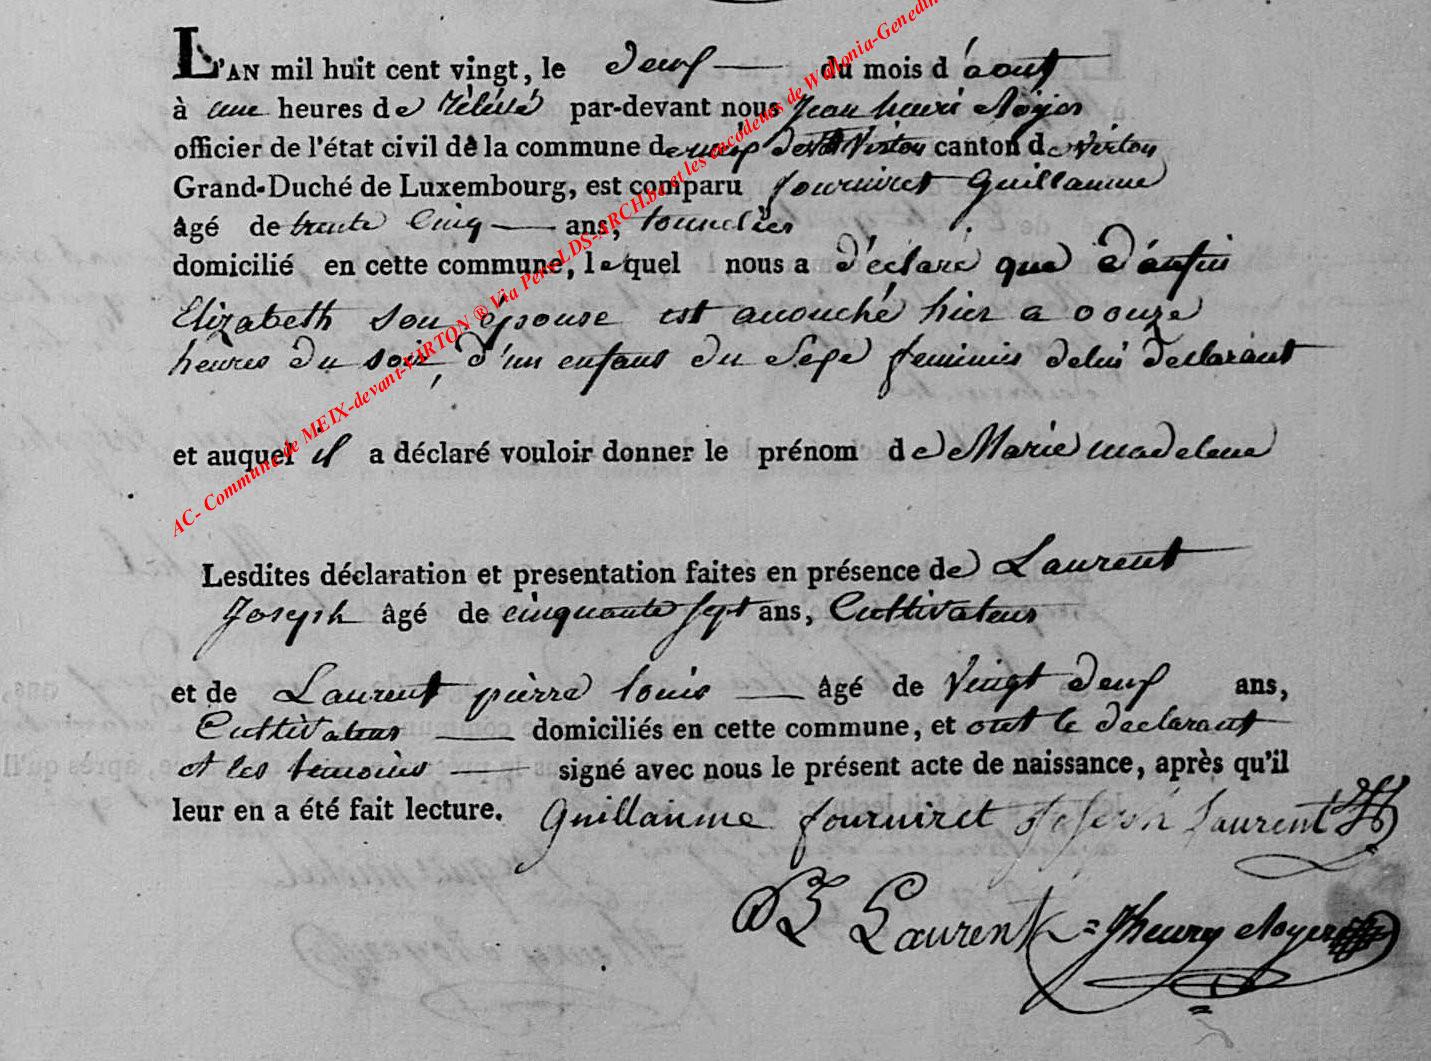 L'AN mil huit cent vingt, le deux du mois d'août
à une heures de relévé par-devant nous Jean henri Noyer
officier de l'état civil de la commune de meix devt Virton canton de virton
Grand-Duché de Luxembourg, est comparu fourniret Guillaume
âgé de trente Cinq ans, tonnelier
domicilié en cette commune, lequel nous a déclaré que
Elizabeth son épouse est acouché hier a oonze
heures du soir, d'un enfant du Sexe feminin delui declarant
et auquel il a déclaré vouloir donner le prénom de Marie madelene
Lesdites déclaration et presentation faites en présence de Laurent
Joseph âgé de cinquante sept ans, Cultivateur
et de Laurent pierre louis âgé de Vingt deux ans,
Cultivateur domiciliés en cette commune, et ont le declarant
et les témoins signé avec nous le présent acte de naissance, après qu'il
leur en a été fait lecture. Guillaume fourniret Joseph Laurent
PL Laurent Jhenry Noyer
AC- Commune de MEIX-devant-VIRTON ® Via Pers-LDS-ARCH.be et les encodeurs de Wallonia-Genedin